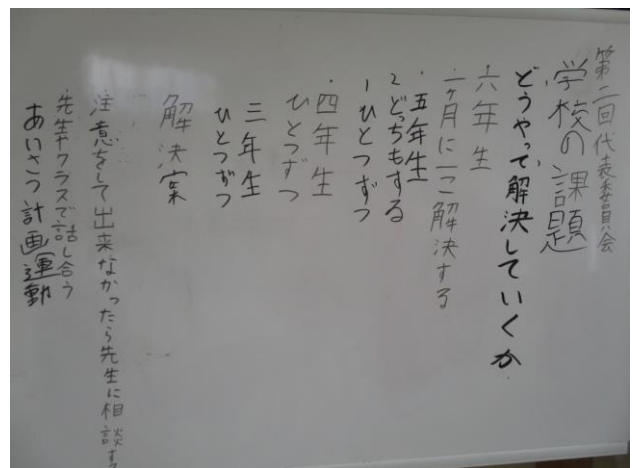 第二回代表委員会
学校の課題
どうやって解決していくか
・六年生
一ヶ月に一こ解決する
・五年生
2どっちもする
1ひとつずつ
・四年生
ひとつずつ
三年生
ひとつずつ
解決案
注意をして出来なかったら先生に相談する
先生やクラスで話し合う
あいさつ計画運動